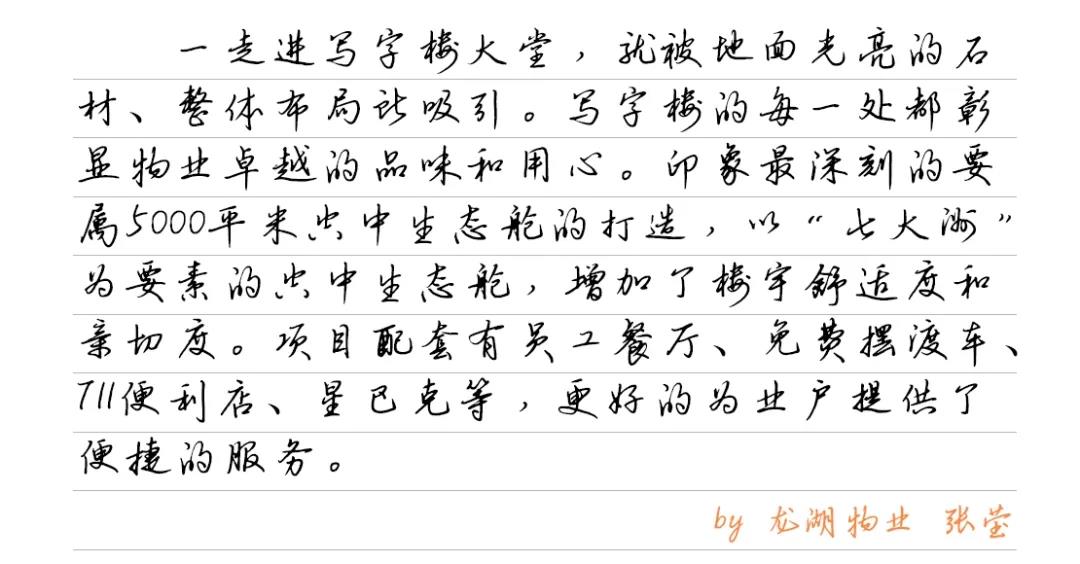 一走进写字楼大堂，就被地面光亮的石
材、整体布局所吸引。写字楼的每一处都彰
显物业卓越的品味和用心。印象最深刻的要
属5000平米空中生态舱的打造，以“七大洲”
为要素的空中生态舱，增加了楼宇舒适度和
亲切度。项目配套有员工餐厅、免费摆渡车、
711便利店、星巴克等，更好的为业户提供了
便捷的服务。
by 龙湖物业 张莹